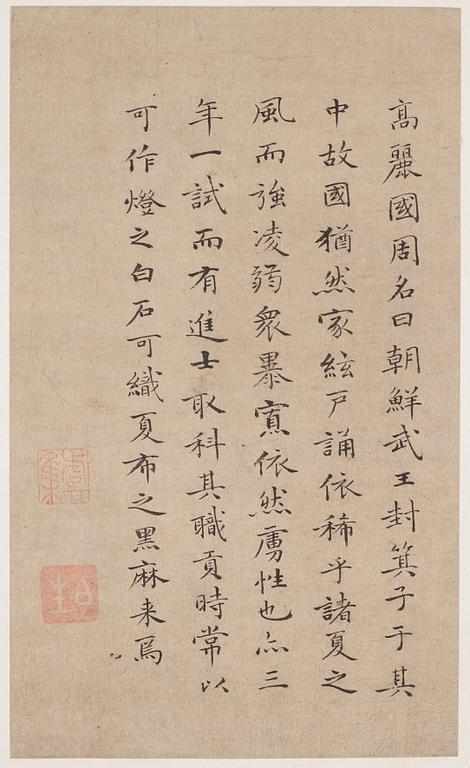 高麗國周名曰朝鮮武王封箕子于其
中故國猶然家絃戸誦依稀乎諸夏之
風而強凌弱衆暴寡依然虜性也亦三
年一試而有進士取科其職貢時常以
可作燈之白石可織夏布之黑麻来焉